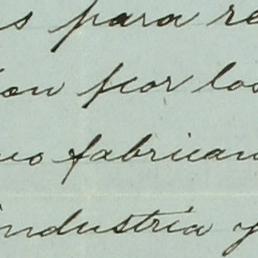 s para re
on por los
no fabrican
industria y